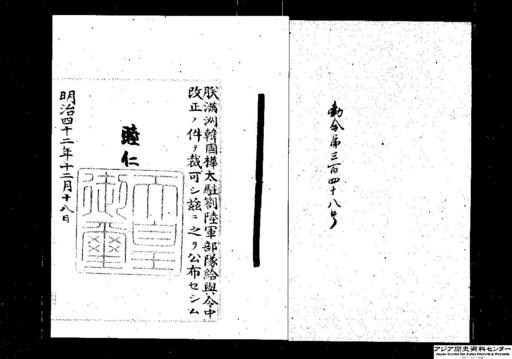 勅令第三百四十八号
朕満洲韓國樺太駐劄陸軍部隊給與令中
改正ノ件ヲ裁可シ茲ニ之ヲ公布セシム
睦仁
天皇御璽
明治四十二年十二月十八日
アジア歴史資料センター
Japan Center for Asian Historical Records